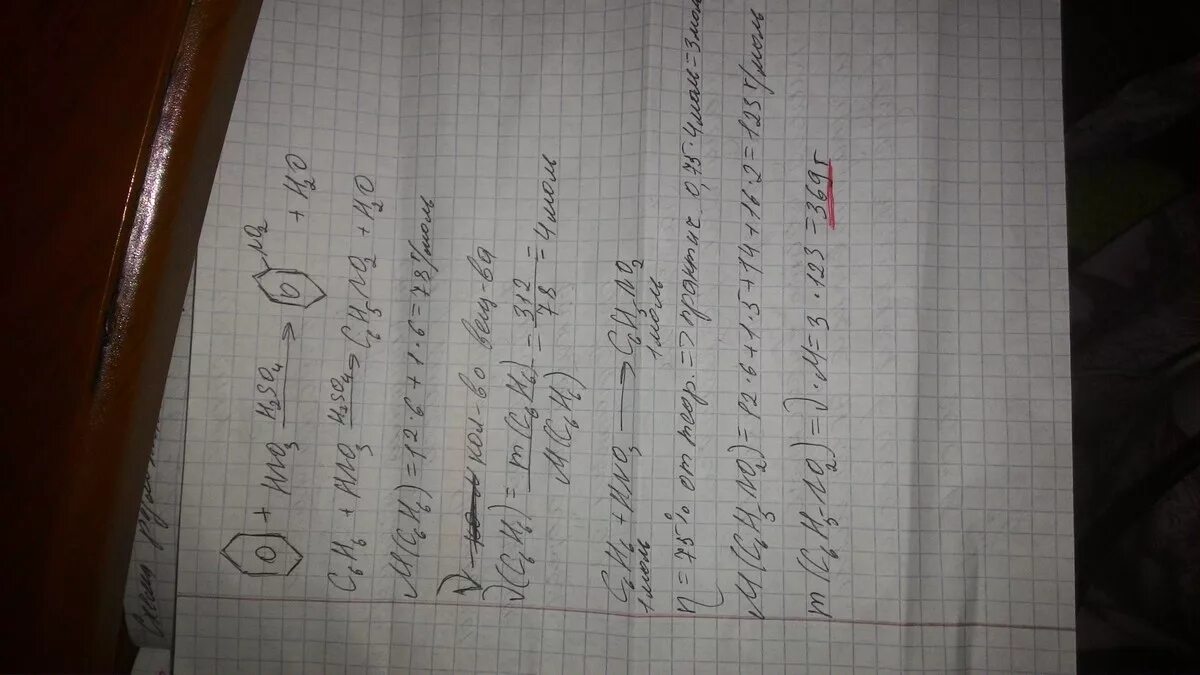 + HNO₃ H₂SO₄ → NO₂ + H₂O
C₆H₆ + HNO₃ H₂SO₄ → C₆H₅NO₂ + H₂O
M(C₆H₆) = 12·6 + 1·6 = 78 г/моль
ν кол-во вещ-ва
ν(C₆H₆) = m(C₆H₆) / M(C₆H₆) = 312 / 78 = 4 моль
C₆H₆ + HNO₃ → C₆H₅NO₂
1 моль 1 моль
η = 75% от теор. => практич 0,75·4 моль = 3 мол
M(C₆H₅NO₂) = 12·6 + 1·5 + 14 + 16·2 = 123 г/моль
m(C₆H₅-NO₂) = ν·M = 3·123 = 369 г